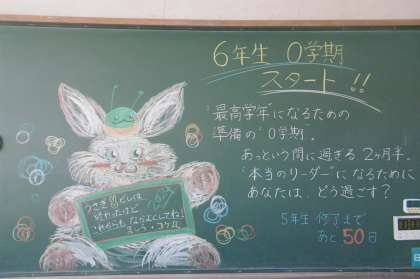 6年生 0学期
スタート!!
"最高学年"になるための
準備の"0学期.
あっという間に過ぎる 2ヶ月半.
"本当のリーダー"になるために
あなたは、どう過ごす?
5年生 修了まで
あと50日
うさぎ どしは
終わったけど
これからも なかよくしてね!